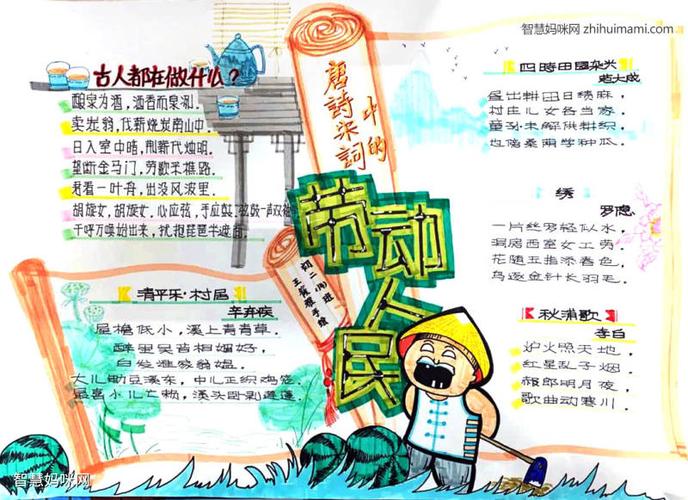 智慧妈咪网 zhihuimami.com
古人都在做什么？
酿泉为酒，酒香而泉洌.
卖炭翁，伐薪烧炭南山中.
日入室中暗，荆薪代烛明.
望断金马门，劳歌采樵路.
君看一叶舟，出没风波里.
胡旋女，胡旋女，心应弦，手应鼓，弦鼓一声双袖
千呼万唤始出来，犹抱琵琶半遮面.
唐詩宋詞
中的
劳动
人民
初二班
王手绘
清平乐·村居
辛弃疾
屋檐低小，溪上青青草.
醉里吴音相媚好，
白发谁家翁媪.
大儿锄豆溪东，中儿正织鸡笼.
最喜小儿亡赖，溪头卧剥莲蓬.
四時田園杂兴
范大成
昼出耕田日绩麻，
村庄儿女各当家.
童孙未解供耕织
也傍桑陰学种瓜.
绣
罗隐
一片丝罗轻似水，
洞房西室女工劳
花随玉指添春色，
鸟逐金针长羽毛.
秋浦歌
李白
炉火照天地，
红星乱子烟.
赧郎明月夜，
歌曲动寒川.
智慧妈咪网